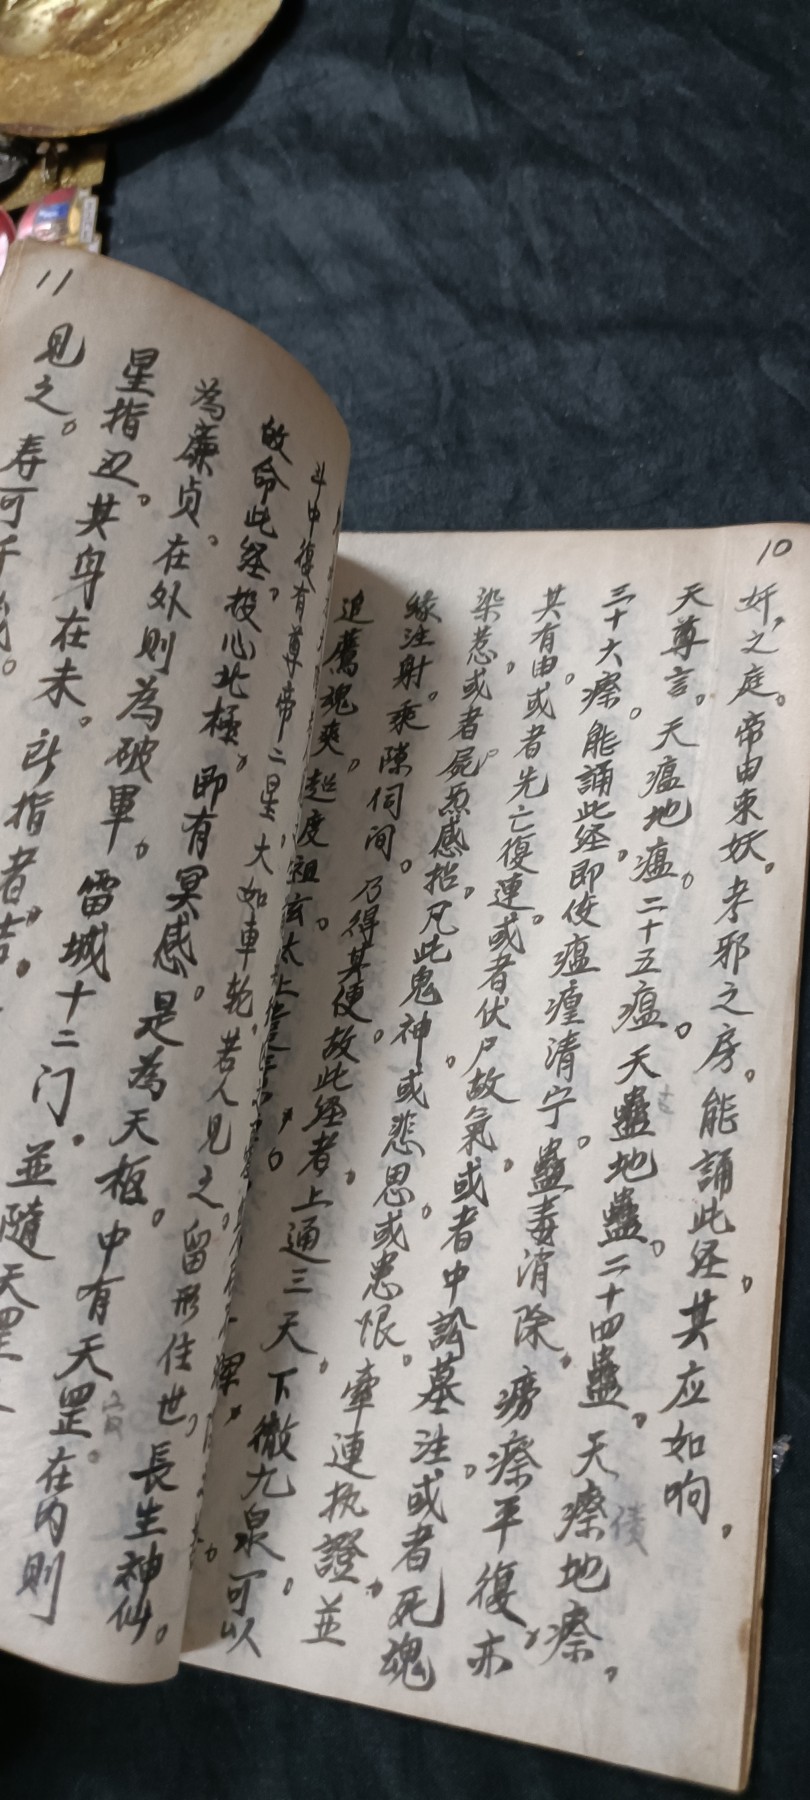 10
奸之庭。帝由束妖。考邪之房。能誦此经。其应如响。
天尊言。天瘟地瘟。二十五瘟。天蠱地蠱。二十四蠱。天瘵地瘵。
三十六瘵。能誦此经。即使瘟瘽清宁。蠱毒消除。癆瘵平復。亦
其有由。或者先亡復連。或者伏尸故氣。或者中訟墓注。或者死魂
染惹。或者屍炁感招。凡此鬼神。或悲思。或恚恨。牽連执證。並
緣注射。乘隙伺间。乃得其便。故此经者。上通三天。下徹九泉。可以
追薦魂爽。超度祖玄。太上
11
斗中復有尊帝二星。大如車轮。若人見之。留形住世。長生神仙。
故命此经。投心北極。即有冥感。是為天枢。中有天罡。在内則
為廉貞。在外則為破軍。雷城十二门。並隨天罡
星指丑。其身在未。所指者吉。
見之。寿可千